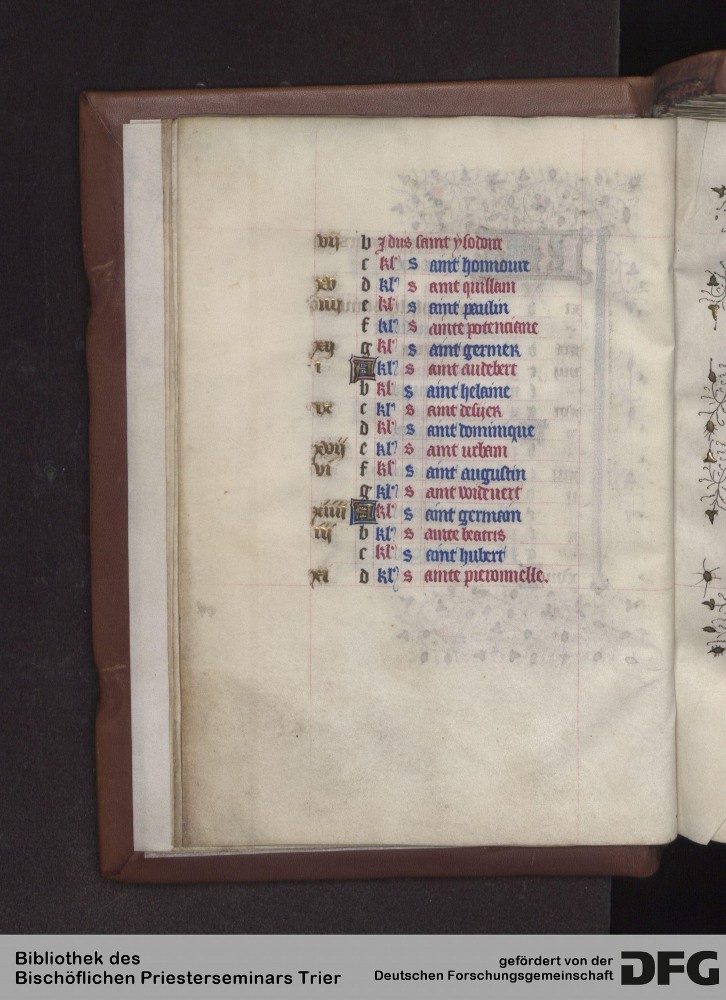 vij b Idus saint ysodoire
c kl' S aint honnoure
xv d kl' S aint quillain
iiij e kl' S aint paulin
f kl' S ainte potenciane
xij g kl' S aint germer
i A kl' S aint audebert
b kl' S ainte helaine
ix c kl' S aint desyer
d kl' S aint dominique
xvij e kl' S aint urbain
vi f kl' S aint augustin
g kl' S aint
xiiij A kl' S aint germain
iij b kl' S ainte beatris
c kl' S aint hubert
xi d kl' S ainte pieronnelle.
Bibliothek des
Bischöflichen Priesterseminars Trier
gefördert von der
Deutschen Forschungsgemeinschaft
DFG